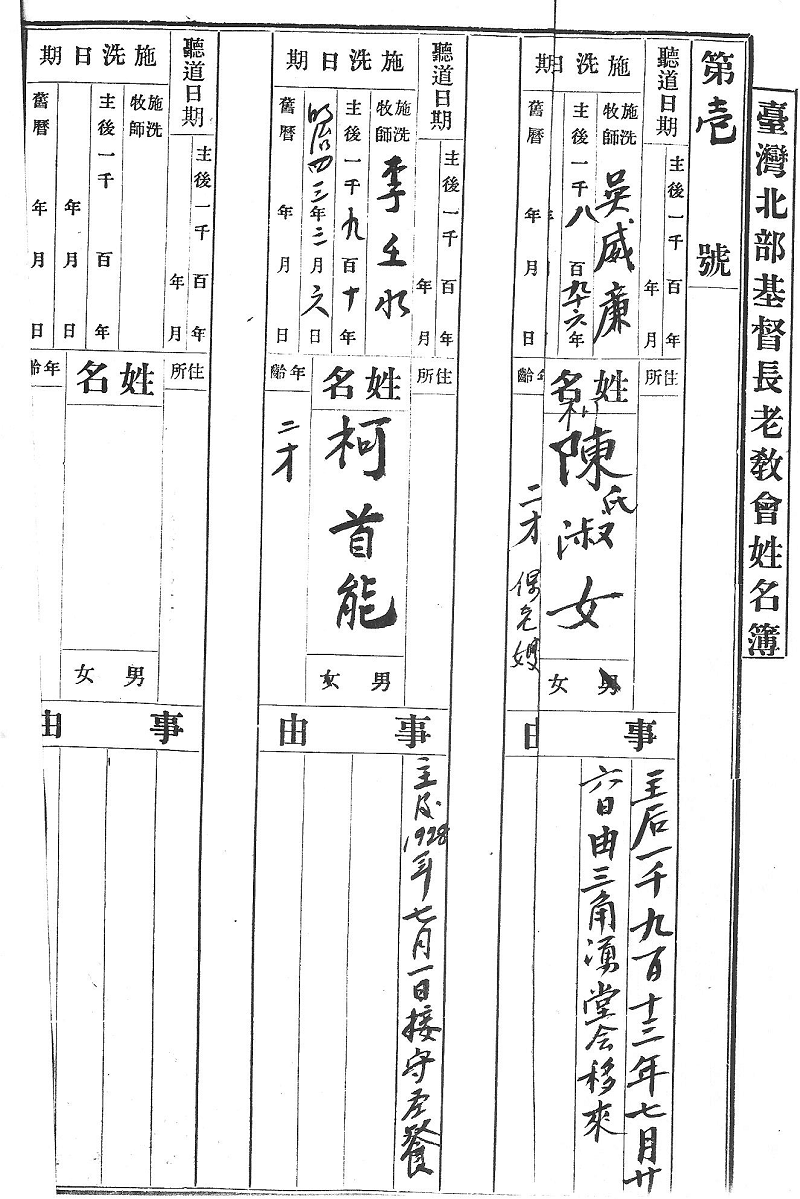 臺灣北部基督長老教會姓名簿
第壱號
聽道日期
主後一千 百 年
年 月
住所
施洗日期
施洗牧師 吳威廉
主後一千八百九十六年
舊曆 年 月 日
姓名
柯陳氏淑女
年齡
二才
保免嫂
男 女
事由
主后一千九百十三年七月廿
六日由三角湧堂会移來
聽道日期
主後一千 百 年
年 月
住所
施洗日期
施洗牧師 李壬水
主後一千九百十年
明治四三年二月六日
舊曆 年 月 日
姓名
柯首能
年齡
二才
男 女
事由
主後1928年七月一日接守圣餐
聽道日期
主後一千 百 年
年 月
住所
施洗日期
施洗牧師
主後一千 百 年
年 月 日
舊曆 年 月 日
姓名
年齡
男 女
事由